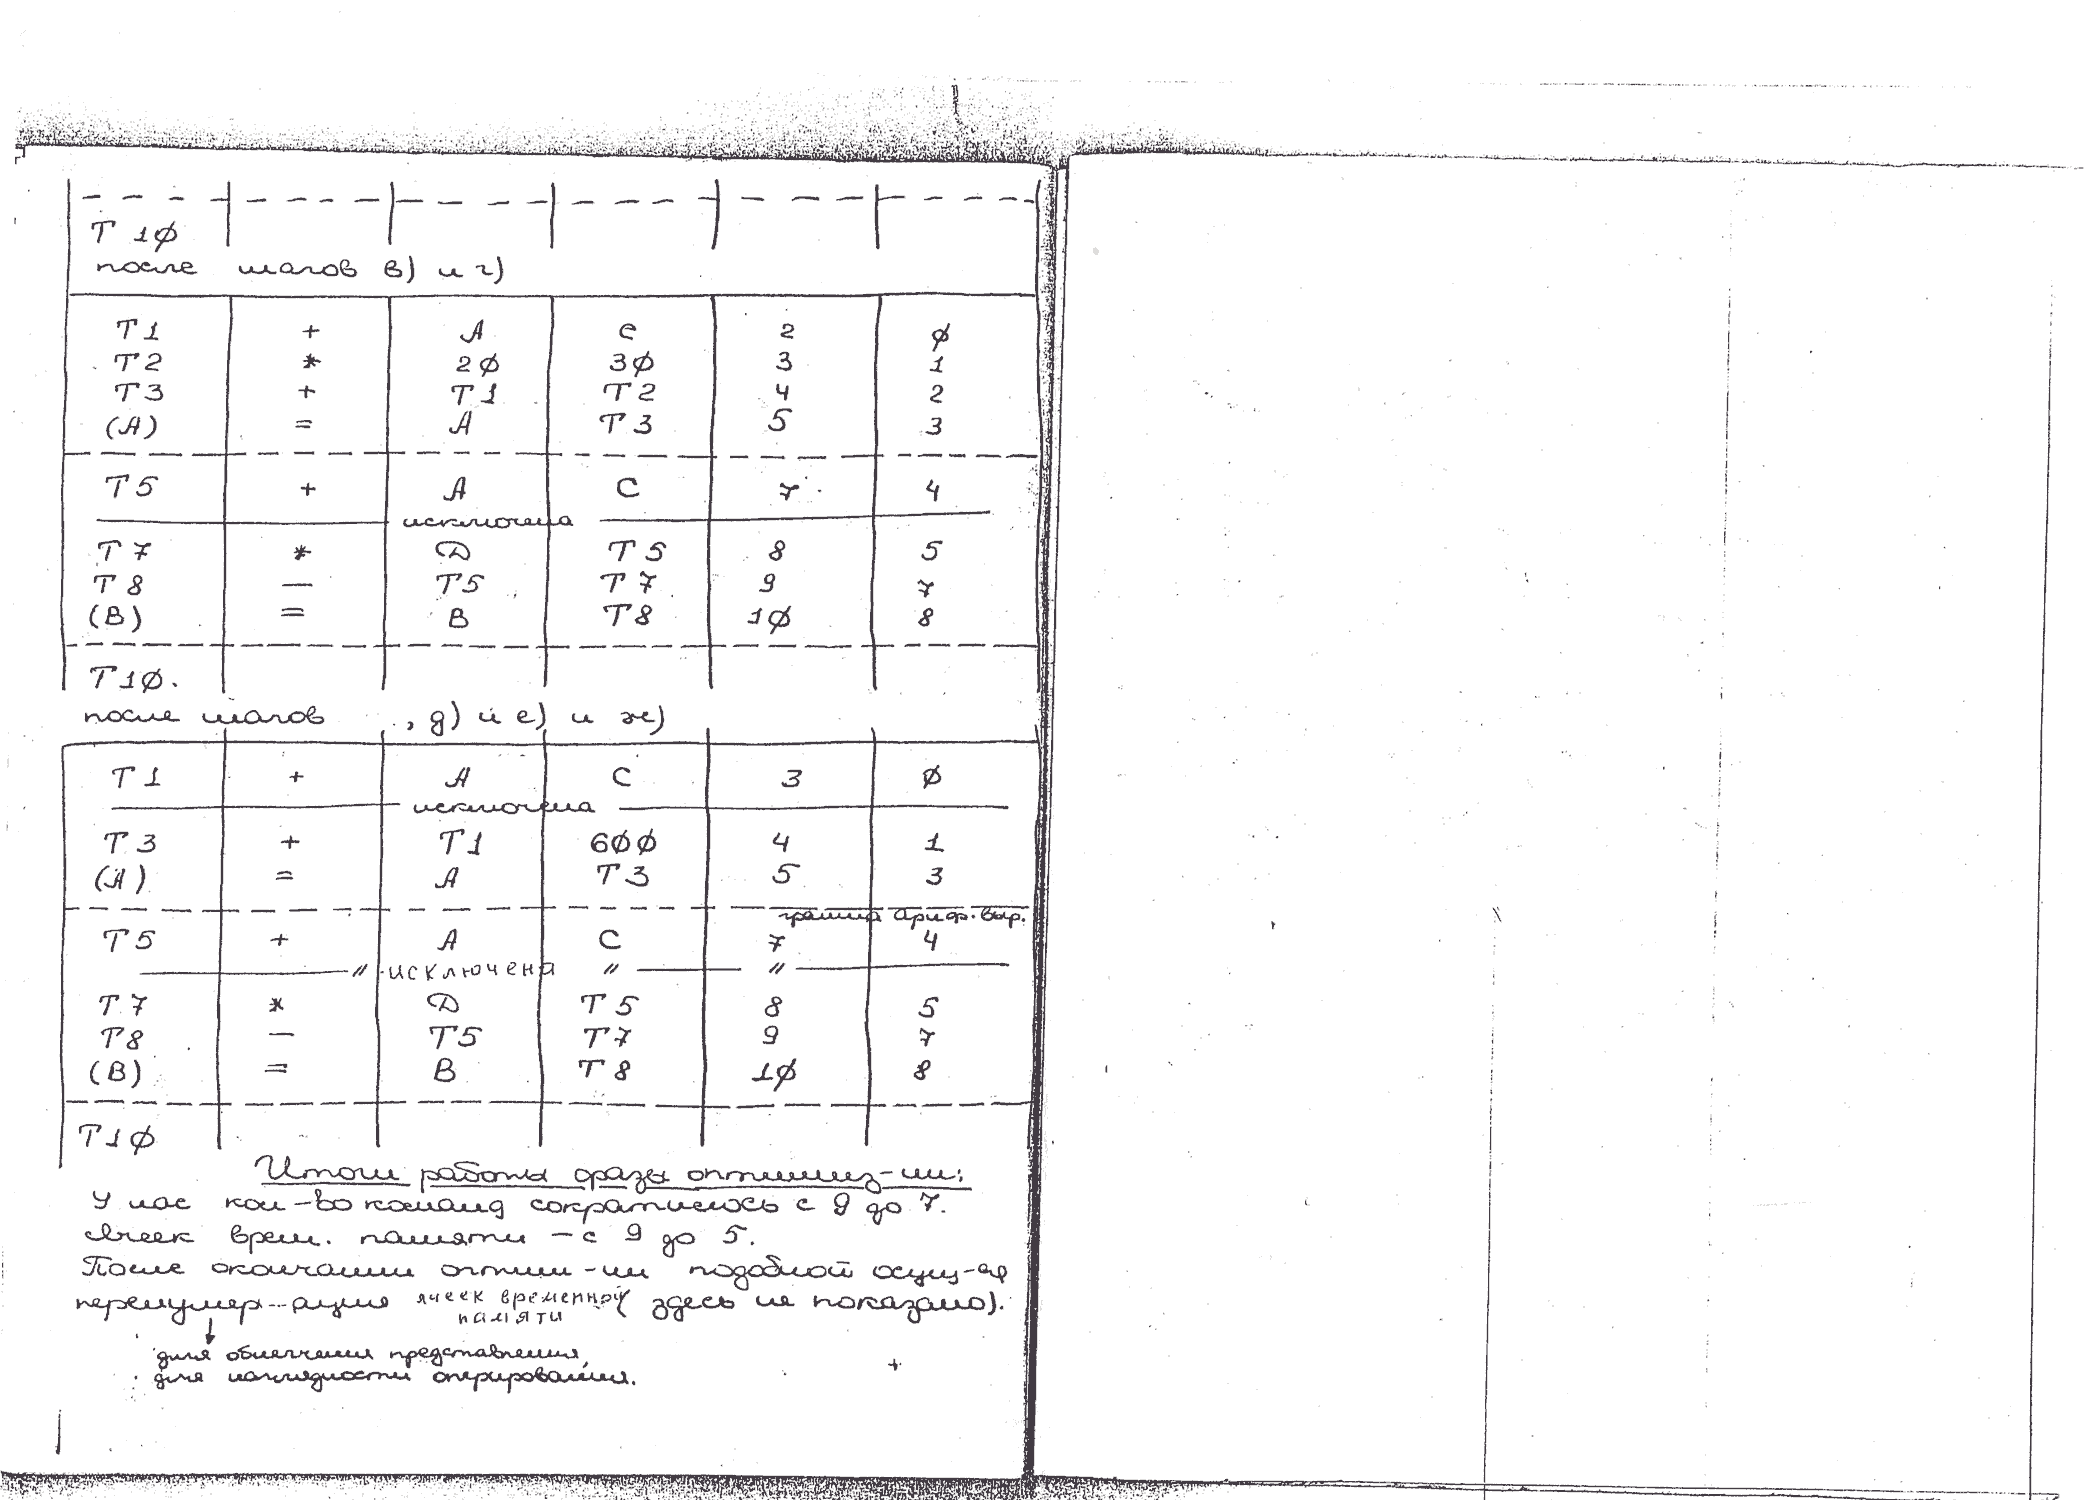 Т 1∅
после шагов в) и г)
Т1 + А С 2 ∅
Т2 * 2∅ 3∅ 3 1
Т3 + Т1 Т2 4 2
(А) = А Т3 5 3
Т5 + А С 7 4
исключена
Т7 * Д Т5 8 5
Т8 — Т5 Т7 9 7
(В) = В Т8 1∅ 8
Т1∅.
после шагов , д) и е) и ж)
Т1 + А С 3 ∅
исключена
Т3 + Т1 6∅∅ 4 1
(А) = А Т3 5 3
граница Ариф. выр.
Т5 + А С 7 4
〃 исключена 〃 〃
Т7 * Д Т5 8 5
Т8 — Т5 Т7 9 7
(В) = В Т8 1∅ 8
Т1∅
Итоги работы фазы оптимиз-ии:
У нас кол-во команд сократилось с 9 до 7.
Ячеек врем. памяти – с 9 до 5.
После окончании оптим-ии подобной осущ-ся
перенумер-ация ячеек временной памяти (здесь не показано).
для облегчения представления,
для наглядности оперирования.